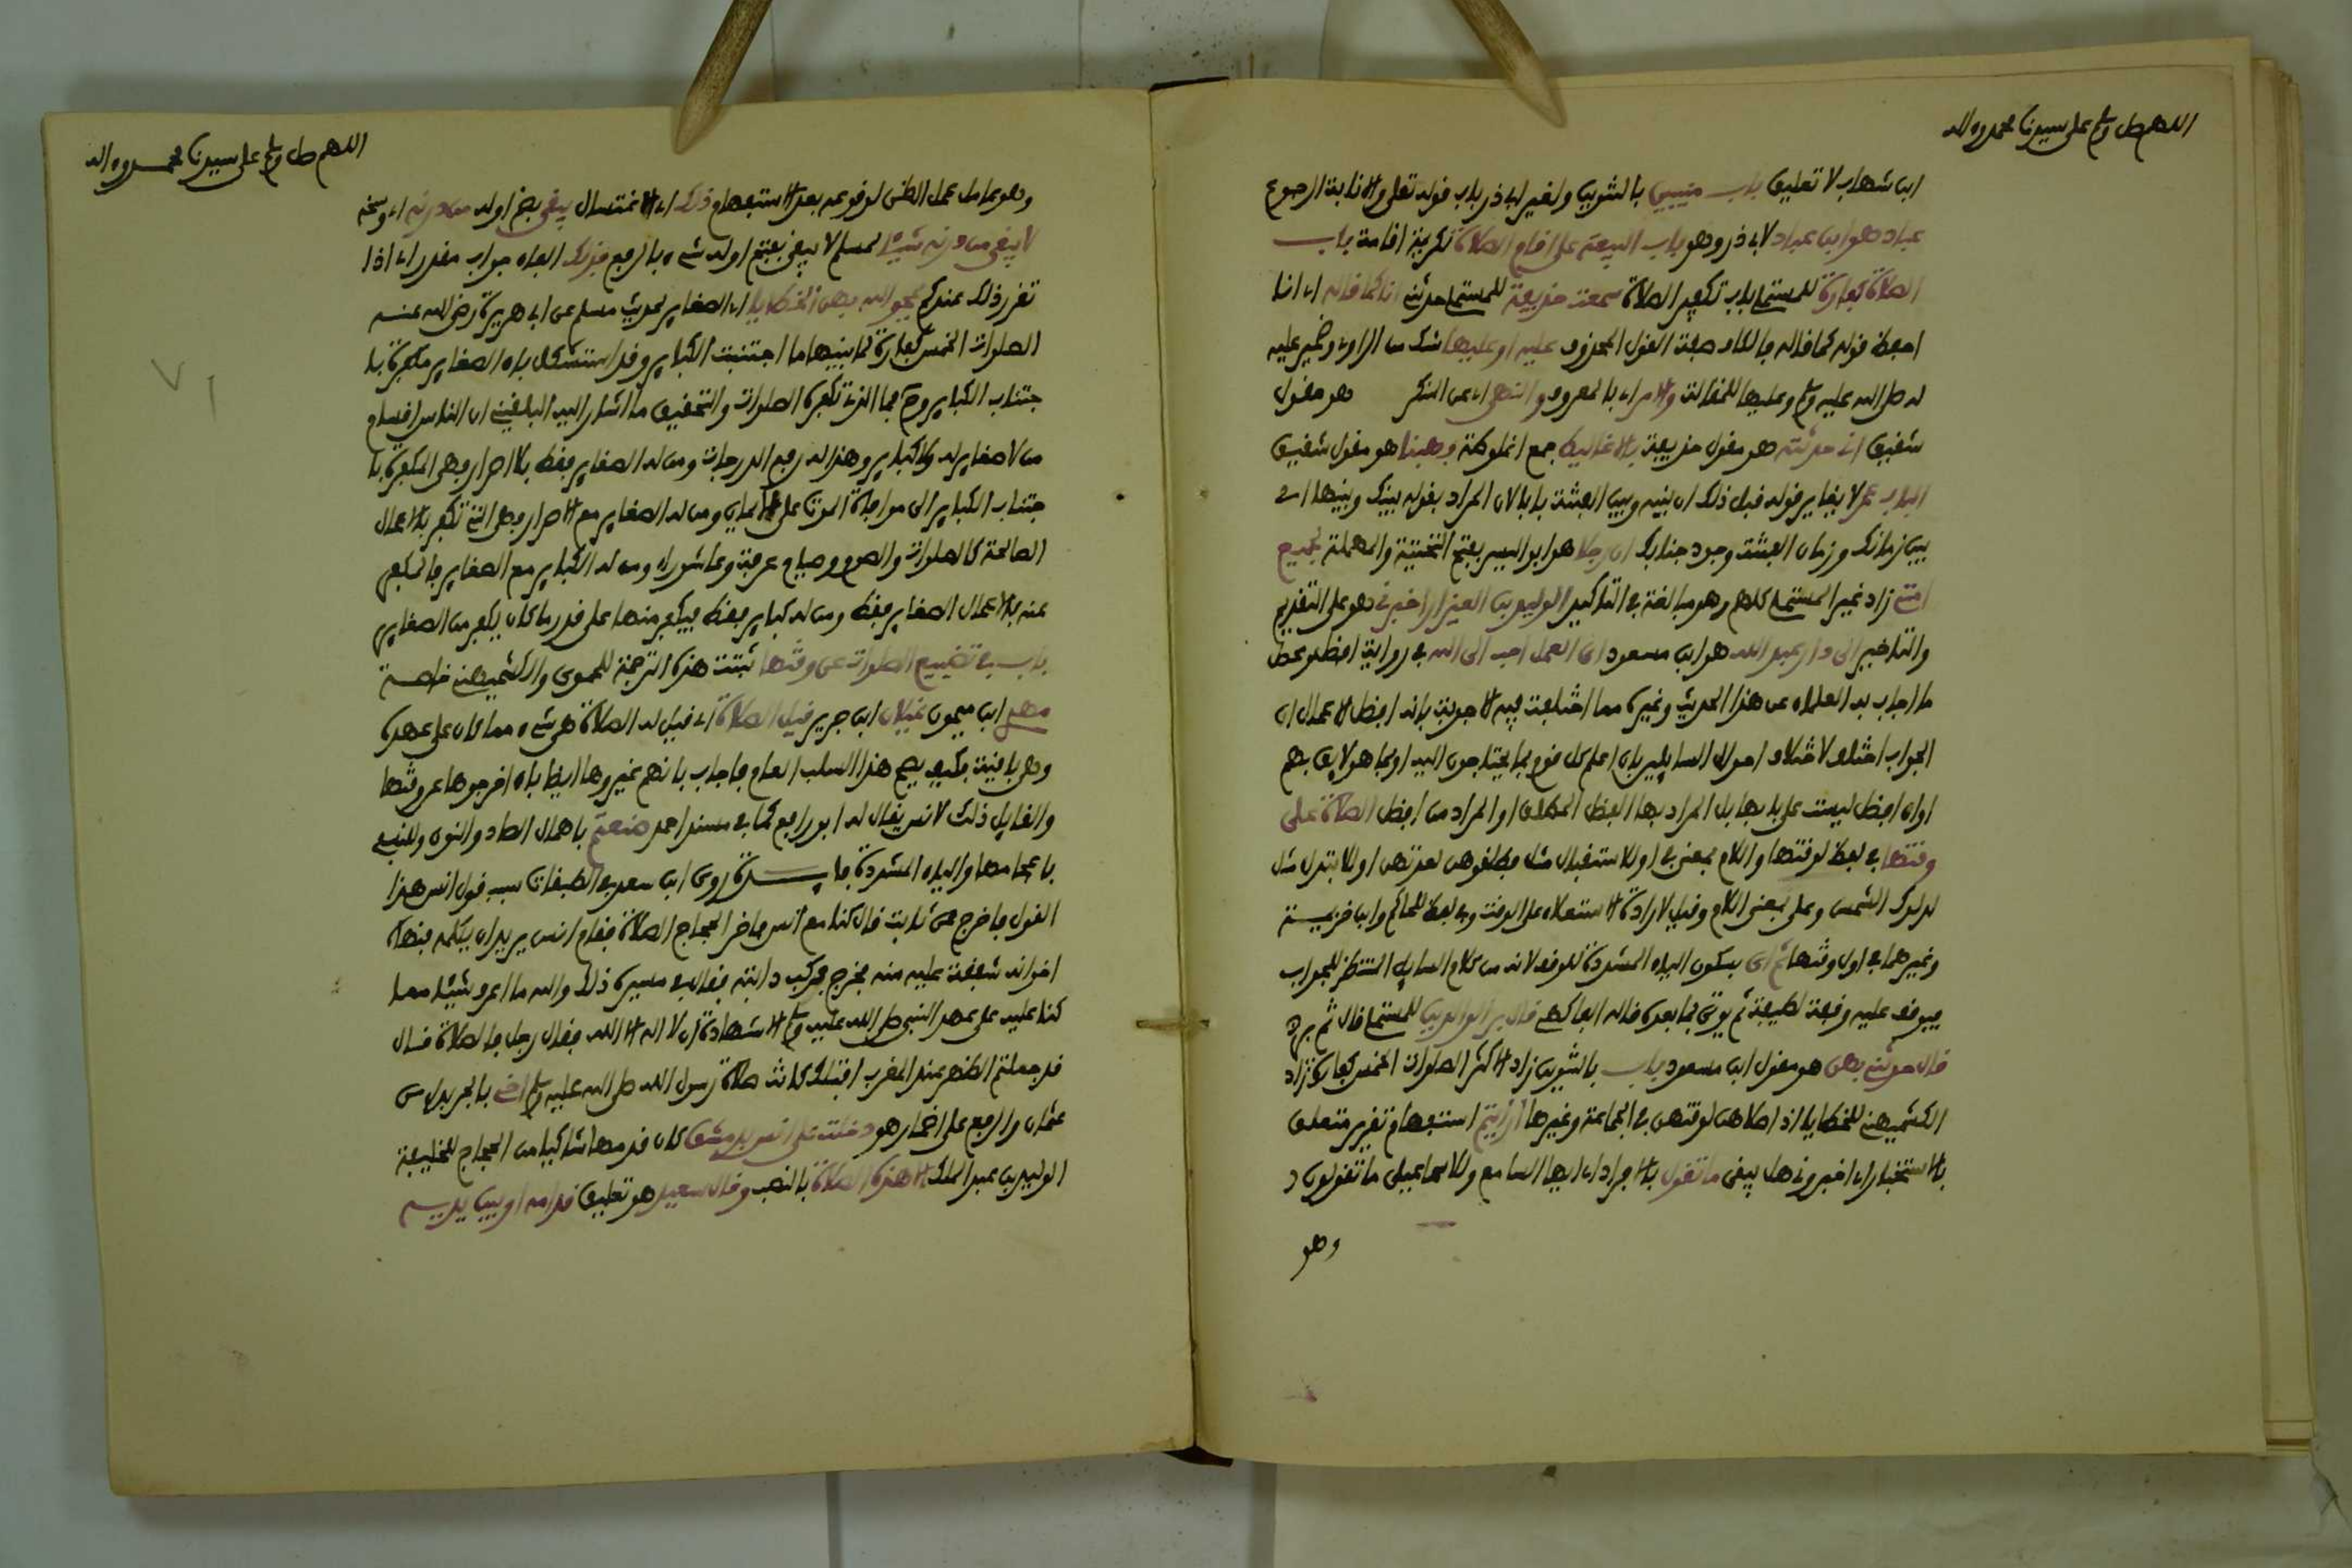 اللهم صل وسلم على سيدنا محمد وءاله
ابن شهاب لا تعليق باب منيبين بالتنوين ولغير ابي ذر باب قوله تعلى والانابة الرجوع
عباد هو ابن عباد لابي ذر وهو باب البيعة على اقام الصلاة لكريمة اقامة باب
الصلاة كفارة للمستملي باب تكفير الصلاة سمعت حذيفة للمستملي حدثني انا كما قاله اي انا
احفظ قوله كما قاله فالكاف صفة القول المحذوف عليه او عليها شك من الراوي وضمير عليه
له صلى الله عليه وسلم وعليها للمقالة والامر اي بالمعروف والنهي اي عن المنكر هو مقول
شقيق اني حدثته هو مقول حذيفة بالاغاليط جمع اغلوطة وهبنا هو مقول شقيق
الباب عمر لا يغاير قوله قبل ذلك ان بينه وبين الفتنة بابا لان المراد بقوله بينك وبينها اي
بين زمانك وزمان الفتنة وجود حياتك ان رجلا هو ابو اليسر بفتح التحتية والمهملة لجميع
امتي زاد غير المستملي كلهم وهو مبالغة في التاكيد الوليد بن العيزار اخبرني هو على التقديم
والتاخير الى دار عبد الله هو ابن مسعود اي العمل احب الى الله في رواية افضل ومحصل
ما اجاب به العلماء عن هذا الحديث وغيره مما اختلفت فيه الاجوبة بانه افضل الاعمال ان
الجواب اختلف لاختلاف احوال السايلين بان اعلم كل قوم بما يحتاجون اليه او بما هو لايق بهم
او ان افضل ليست على بابها بل المراد بها الفضل المطلق او المراد من افضل الصلاة على
وقتها في لفظ لوقتها واللام بمعنى في او للاستقبال مثل فطلقوهن لعدتهن او للابتداء مثل
لدلوك الشمس وعلى بمعنى اللام وقيل لارادة الاستعلاء على الوقت وفي لفظ للحاكم وابن خزيمة
وغيرهما في اول وقتها ثم اي بسكون الياء المشددة للوقف لانه من كلام السايل المنتظر للجواب
فيوقف عليه وقفة لطيفة ثم يوتى بما بعده قاله الفاكهي قال بر الوالدين للمستملي قال ثم بر
قال حدثني بهن هو مقول ابن مسعود باب بالتنوين زاد الاكثر الصلوات الخمس كفارة زاد
الكشميهني للخطايا اذا صلاهن لوقتهن في الجماعة وغيرها ارايتم استفهام تقرير متعلق
بالاستخبار اي اخبروني هل يبقى ما تقول بالافراد اي ايها السامع وللاسماعيلي ما تقولون
وهو
اللهم صل وسلم على سيدنا محمد وءاله
وهو عامل عمل الظن لوقوعه بعد الاستفهام ذلك اي الاغتسال يبقي بضم اوله من درنه اي وسخه
لا يبقي من درنه شيئا لمسلم لا يبقى بفتح اوله شيء بالرفع فذلك الفاء جواب مقدر اي اذا
تقرر ذلك عندكم يمحو الله بهن الخطايا اي الصغاير لحديث مسلم عن ابي هريرة رضي الله عنه
الصلوات الخمس كفارة لما بينها ما اجتنبت الكباير وقد استشكل بان الصغاير مكفرة با
جتناب الكباير وح فما الذي تكفره الصلوات والتحقيق ما اشار اليه البلقيني ان الناس اقسام
من لا صغاير له ولا كباير وهذا له رفع الدرجات ومن له الصغاير فقط بلا اصرار وهي المكفرة با
جتناب الكباير الى موافاة الموت على الايمان ومن له الصغاير مع الاصرار وهي التي تكفر بالاعمال
الصالحة كالصلوات والصوم وصيام عرفة وعاشوراء ومن له الكباير مع الصغاير فالمكفر
عنه بالاعمال الصغاير فقط ومن له كباير فقط فيكفر منها على قدر ما كان يكفر من الصغاير
باب في تضييع الصلوات عن وقتها ثبتت هذه الترجمة للحموي والكشميهني خاصة
مهدي ابن ميمون غيلان ابن جرير قيل الصلاة اي قيل له الصلاة هي شيء مما كان على عهده
وهي باقية فكيف يصح هذا السلب العام فاجاب بانهم غيروها ايضا بان اخرجوها عن وقتها
والقايل ذلك لانس يقال له ابو رافع كما في مسند احمد صنعتم باهمال الصاد والنون وللنسفي
باعجامها والياء المشددة فايـــدة روى ابن سعد في الطبقات سبب قول انس هذا
القول فاخرج عن ثابت قال كنا مع انس فاخر الحجاج الصلاة فقام انس يريد ان يكلمه فنهاه
اخوانه شفقة عليه منه فخرج فركب دابته فقال في مسيره ذلك والله ما اعرف شيئا مما
كنا عليه على عهد النبي صلى الله عليه وسلم الا شهادة ان لا اله الا الله فقال رجل فالصلاة قال
قد جعلتم الظهر عند المغرب افتلك كانت صلاة رسول الله صلى الله عليه وسلم اخي بالجر بدل من
عثمان والرفع على اضمار هو دخلت على انس بدمشق كان قدمها شاكيا من الحجاج للخليفة
الوليد بن عبد الملك الا هذه الصلاة بالنصب وقال سعيد هو تعليق قدامه او بين يديه